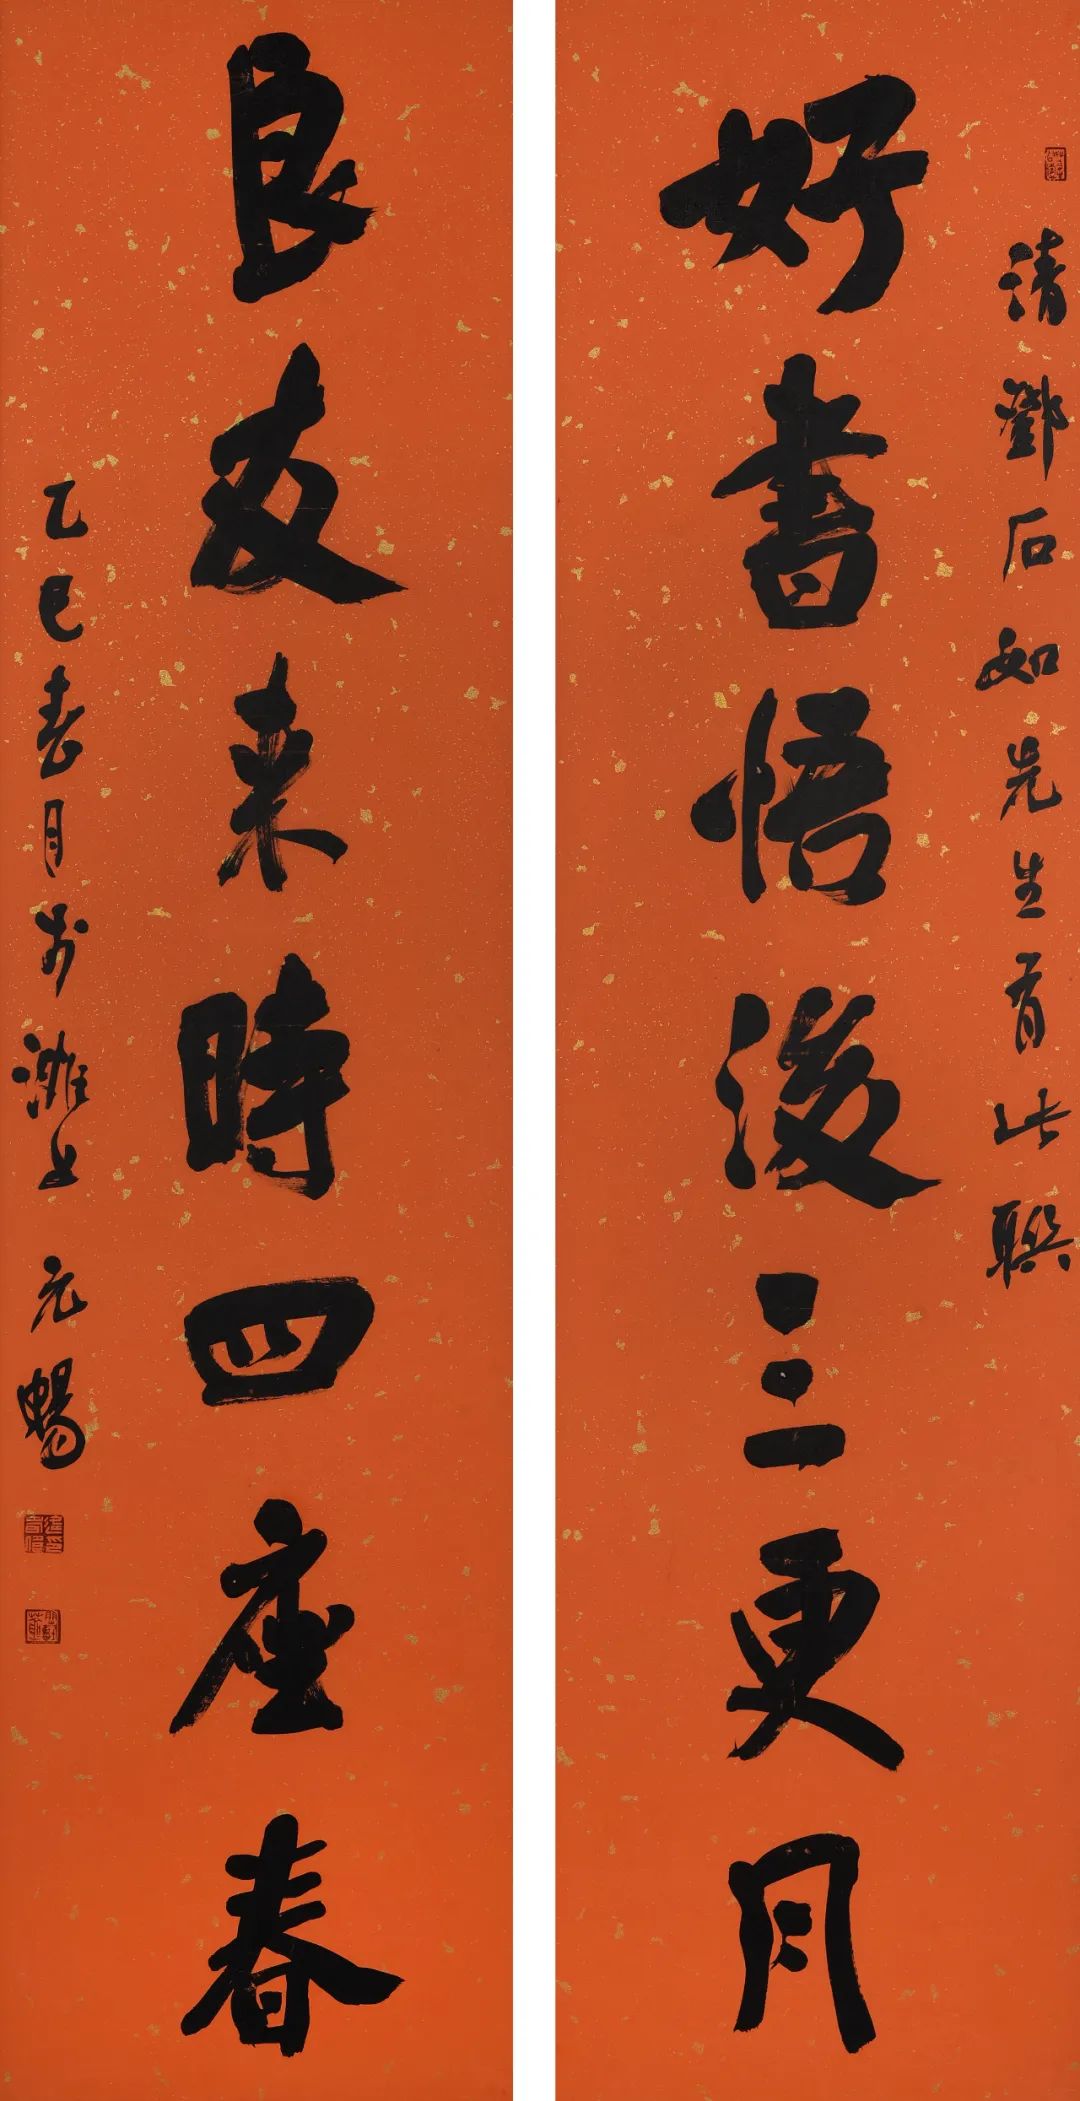 清鄧石如先生有此聯
好書悟後三更月
良友来時四座春
乙巳春月於濰上 元暢